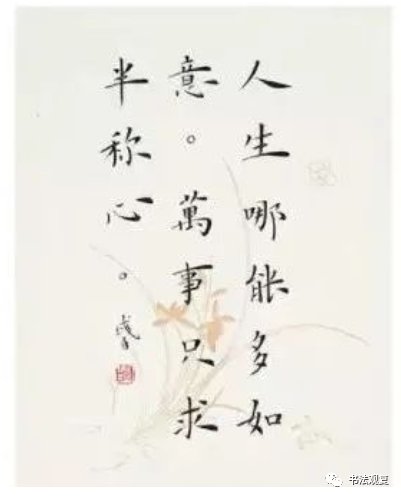 人生哪能多如
意。萬事只求
半称心。
书法观复